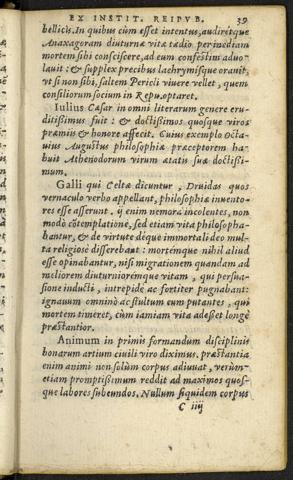 EX INSTIT. REIPVB. 39
bellicis. In quibus cùm esset intentus, audiretque
Anaxagoram diuturnæ vitæ tædio perinediam
mortem sibi consciscere, ad eum confestim aduo-
lauit: & supplex precibus lachrymisque orauit,
vt si non sibi, saltem Pericli viuere vellet, quem
consiliorum socium in Repu. optaret.
Iulius Cæsar in omni literarum genere eru-
ditissimus fuit: & doctissimos quosque viros
præmiis & honore affecit. Cuius exemplo Octa-
uius Augustus philosophiæ præceptorem ha-
buit Athenodorum virum ætatis suæ doctissi-
mum.
Galli qui Celtæ dicuntur, Druidas quos
vernaculo verbo appellant, philosophiæ inuento-
res esse asserunt, ij enim nemora incolentes, non
modò cōtemplatione, sed etiam vita philosopha-
bantur, & de virtute déque immortali deo mul-
ta religiosè disserebant: mortémque nihil aliud
esse opinabantur, nisi migrationem quandam ad
meliorem diuturnioremque vitam, qui persua-
sione inducti, intrepidè ac fortiter pugnabant:
ignauum omninò ac stultum eum putantes, qui
mortem timeret, cùm iamiam vita adesset longè
præstantior.
Animum in primis formandum disciplinis
bonarum artium ciuili viro diximus. præstantia
enim animi non solùm corpus adiuuat, verùm-
etiam promptissimum reddit ad maximos quos-
que labores subeundos. Nullum siquidem corpus
C iiij